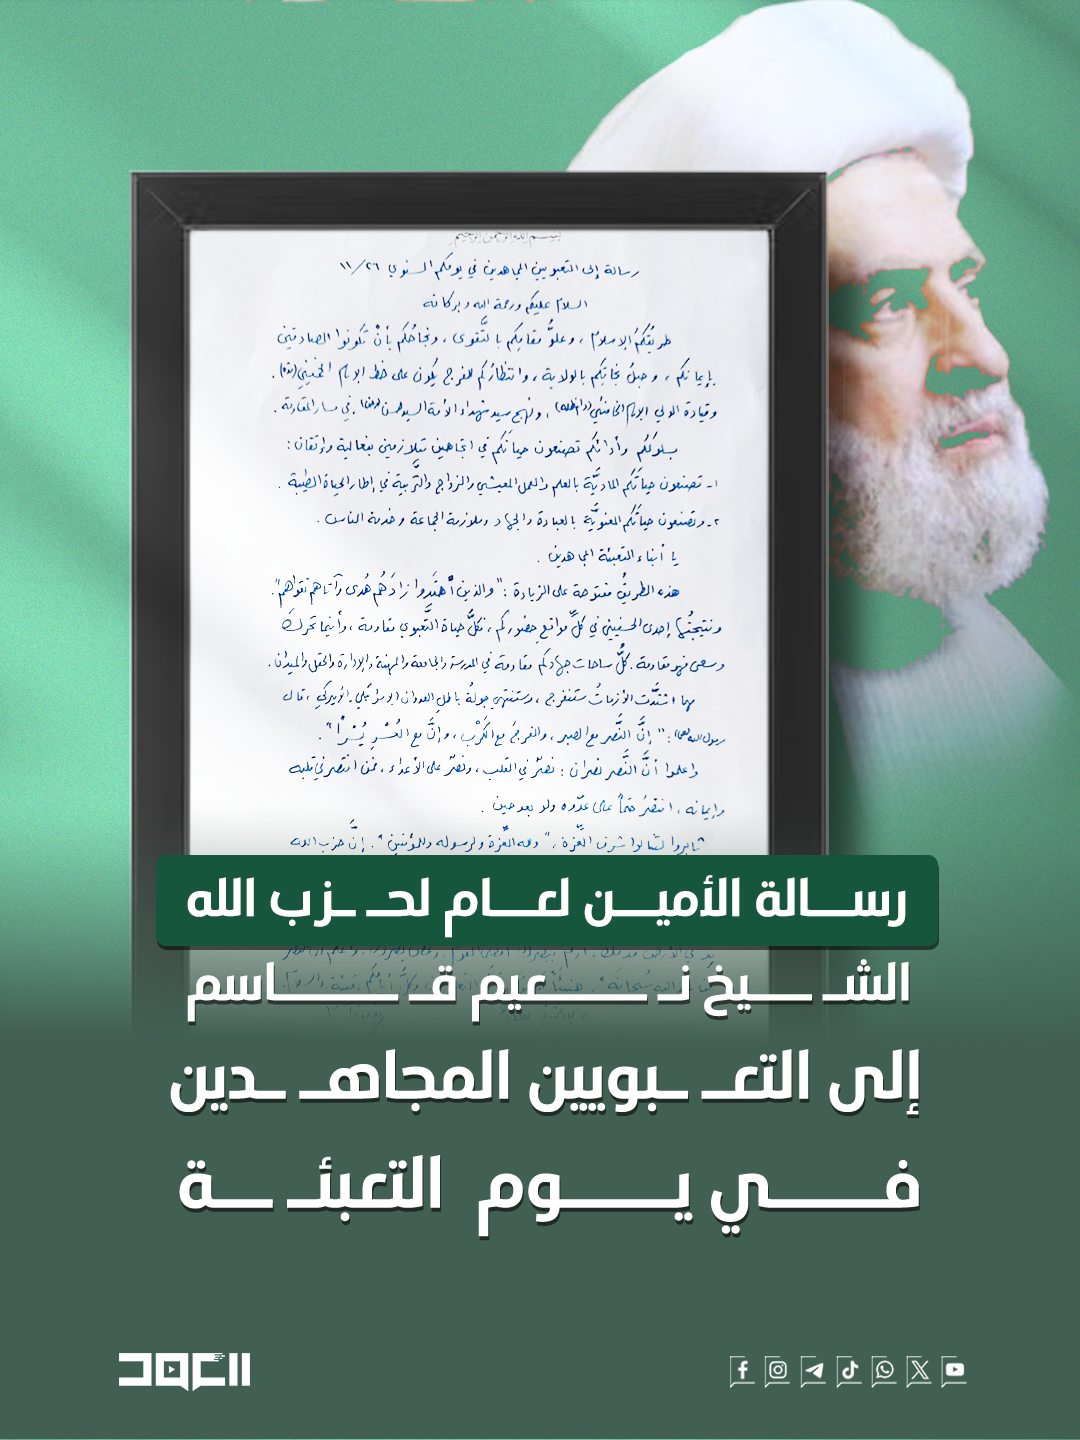 بسم الله الرحمن الرحيم
رسالة إلى التعبويين المجاهدين في يومكم السنوي ٢٦/١١
السلام عليكم ورحمة الله وبركاته
طريقُكُم الإسلامُ، وعلوُّ مقامِكُم بالتَّقوى، ونجاحُكم بأنْ تكونوا الصادقين
بإيمانكم، وحبلُ نجاتِكُم بالولاية، وانتظارُكُم للفرج يكون على خط الإمام الخميني(قده)،
وقيادة الولي الإمام الخامنئي(دام ظله)، ونهج سيد شهداء الأمة السيد حسن(رض)، في مسار المقاومة.
بسلوككم وأدائكم تصنعون حياتَكم في اتجاهين متلازمين بفعالية وإتقان:
١- تصنعون حياتَكُم الماديَّة بالعلم والعمل المعيشي والزواج والتَّربية في إطار الحياة الطيبة.
٢- وتصنعون حياتَكُم المعنويَّة بالعبادة والجهاد وملازمة الجماعة وخدمة الناس.
يا أبناء التعبئة المجاهدين.
هذه الطريقُ مفتوحة على الزيادة: "والذين اهتَدوا زادَهُم هُدى وآتاهم تقواهم".
ونتيجتُها إحدى الحسنيين في كلِّ مواقع حضوركُم، فكلُّ حياة التَّعبوي مقاومة، وأينما تحركَ
وسعى فهو مقاومة. كلُّ ساحات جهادكم مقاومة في المدرسة والجامعة والمهنة والإدارة والحقل والميدان.
مهما اشتدَّت الأزماتُ ستنفرج، وستنتهي جولةُ باطل العدوان الإسرائيلي الأميركي، قال
رسول الله(ص): "إنَّ النَّصر مع الصبر، والفرجَ مع الكَرْب، وإنَّ مع العُسْرِ يُسْراً".
واعلموا أنَّ النَّصر نصران: نصرٌ في القلب، ونصرٌ على الأعداء، فمن انتصر في قلبه
وإيمانه، انتصرَ حتماً على عدّوه ولو بعد حين.
ثابروا لتنالوا شرف العِّزة، "ولله العِّزة ولرسوله وللمؤمنين". إنَّ حزب الله
رســالة الأميــن لعــام لحــزب الله
الشــيخ نــعيم قــاسم
إلى التعــبويين المجاهــدين
فــي يــوم التعبئــة
العهد